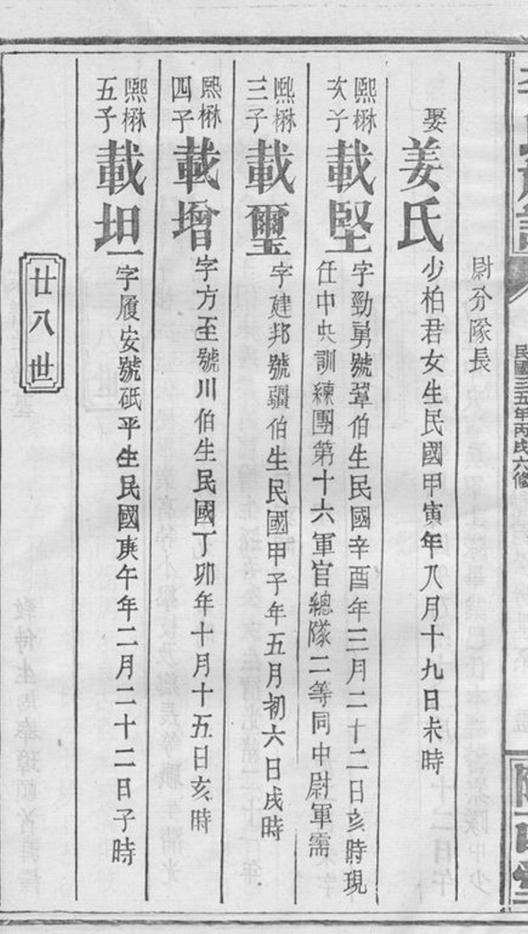 民國三五年丙戌六修
尉分隊長
娶姜氏少柏君女生民國甲寅年八月十九日未時
熙楙次子載堅字勁勇號犟伯生民國辛酉年三月二十二日亥時現
任中央訓練團第十六軍官總隊二等同中尉軍需
熙楙三子載璽字建邦號疆伯生民國甲子年五月初六日戌時
熙楙四子載增字方至號川伯生民國丁卯年十月十五日亥時
熙楙五子載坦字履安號砥平生民國庚午年二月二十二日子時
廿八世